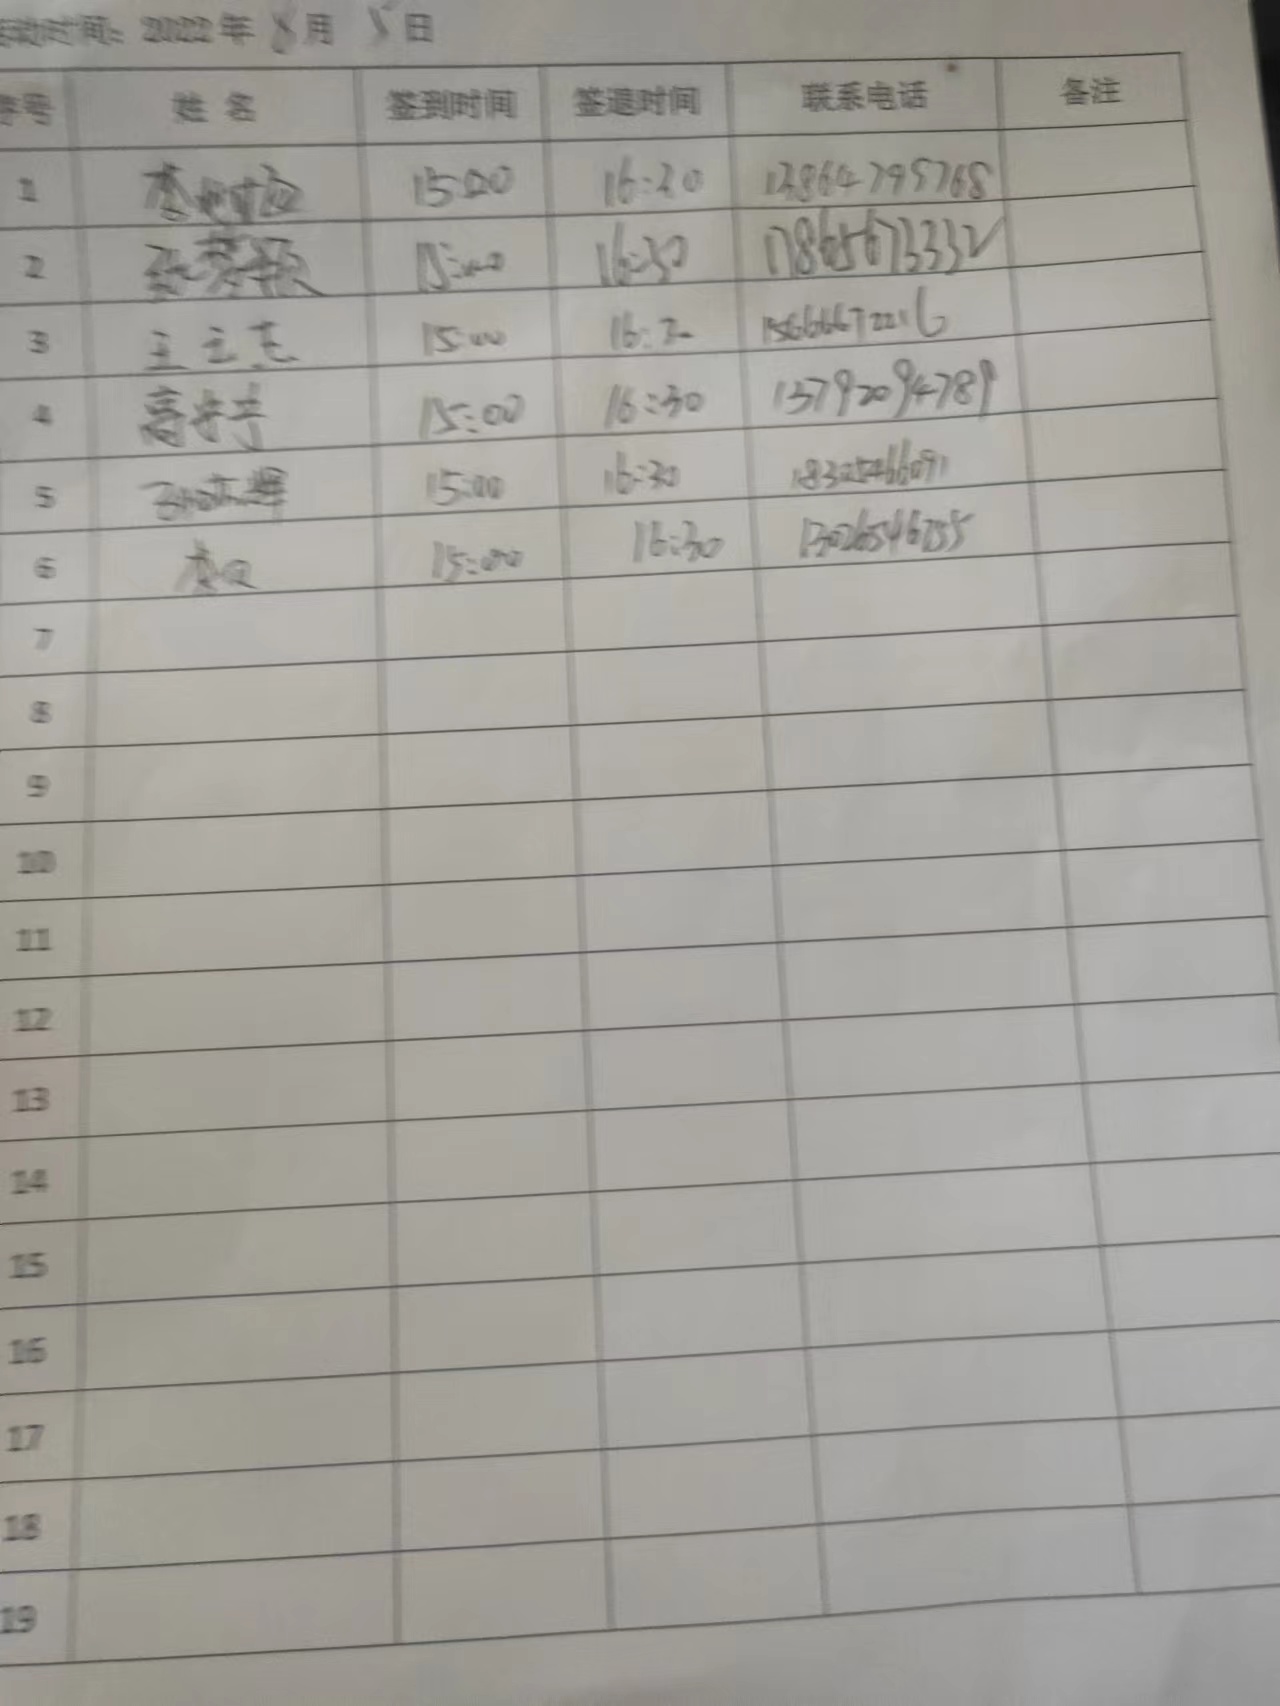 活动时间：2022年8月5日
序号 姓名 签到时间 签退时间 联系电话 备注
1 15:00 16:30 13864795768
2 15:00 16:30 17865673332
3 王立志 15:00 16:30
4 15:00 16:30 13792094789
5 15:00 16:30
6 15:00 16:30
7
8
9
10
11
12
13
14
15
16
17
18
19